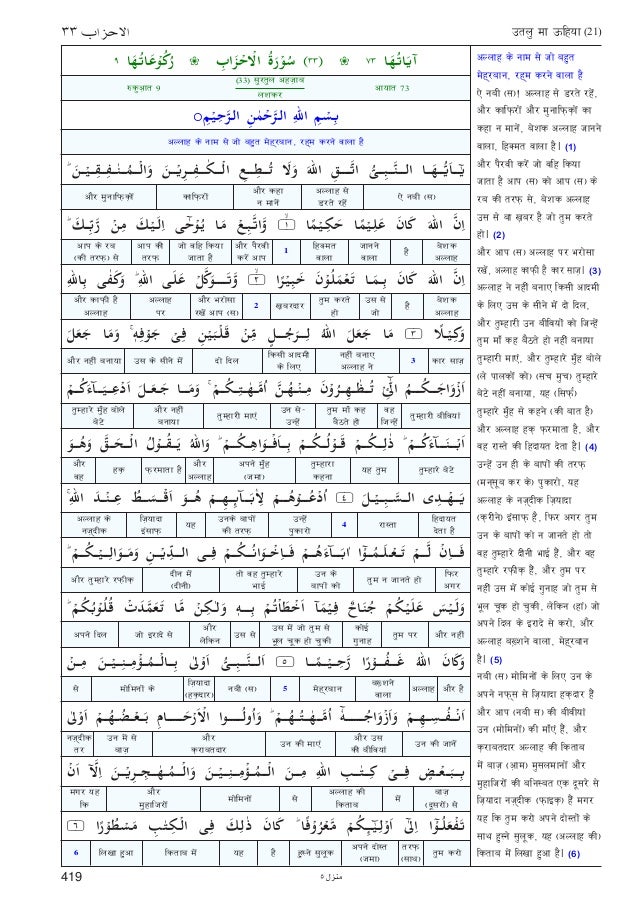 الاحزاب ٣٣
उतलु मा ऊहिया (21)
اٰيَاتُهَا ٧٣ ❀ (٣٣) سُوْرَةُ الْاَحْزَابِ ❀ رُكُوْعَاتُهَا ٩
रुकुआत 9
(33) सूरतुल अहज़ाब
लशकर
आयात 73
بِسْمِ اللهِ الرَّحْمٰنِ الرَّحِيْمِ ○
अल्लाह के नाम से जो बहुत मेह्रबान, रहम करने वाला है
يٰٓاَيُّهَا النَّبِيُّ اتَّقِ اللهَ وَلَا تُطِعِ الْكٰفِرِيْنَ وَالْمُنٰفِقِيْنَ ؕ
ऐ नबी (स) | अल्लाह से डरते रहें | और कहा न मानें | काफ़िरों | और मुनाफ़िक़ों
اِنَّ اللهَ كَانَ عَلِيْمًا حَكِيْمًا ۙ ١ وَّاتَّبِعْ مَا يُوْحٰٓى اِلَيْكَ مِنْ رَّبِّكَ ؕ
बेशक अल्लाह | है | जानने वाला | हिक्मत वाला | 1 | और पैरवी करें आप | जो वहि किया जाता है | आप की तरफ़ | आप के रब (की तरफ़) से
اِنَّ اللهَ كَانَ بِمَا تَعْمَلُوْنَ خَبِيْرًا ۙ ٢ وَّتَوَكَّلْ عَلَى اللهِ ؕ وَكَفٰى بِاللهِ
बेशक अल्लाह | है | उस से जो | तुम करते हो | ख़बरदार | 2 | और भरोसा रखें आप (स) | अल्लाह पर | और काफ़ी है अल्लाह
وَكِيْلًا ٣ مَا جَعَلَ اللهُ لِرَجُلٍ مِّنْ قَلْبَيْنِ فِيْ جَوْفِهٖ ۚ وَمَا جَعَلَ
कार साज़ | 3 | नहीं बनाए अल्लाह ने | किसी आदमी के लिए | दो दिल | उस के सीने में | और नहीं बनाया
اَزْوَاجَكُمُ الّٰٓـِٔيْ تُظٰهِرُوْنَ مِنْهُنَّ اُمَّهٰتِكُمْ ۚ وَمَا جَعَلَ اَدْعِيَآءَكُمْ
तुम्हारी बीवियां | वह जिन्हें | तुम माँ कह बैठते हो | उन से-उन्हें | तुम्हारी माएं | और नहीं बनाया | तुम्हारे मुँह बोले बेटे
اَبْنَآءَكُمْ ؕ ذٰلِكُمْ قَوْلُكُمْ بِاَفْوَاهِكُمْ ؕ وَاللهُ يَقُوْلُ الْحَقَّ وَهُوَ
तुम्हारे बेटे | यह तुम | तुम्हारा कहना | अपने मुँह (जमा) | और अल्लाह | फ़रमाता है | हक़ | और वह
يَهْدِي السَّبِيْلَ ٤ اُدْعُوْهُمْ لِاٰبَآئِهِمْ هُوَ اَقْسَطُ عِنْدَ اللهِ ۚ
हिदायत देता है | रास्ता | 4 | उन्हें पुकारो | उनके बापों की तरफ़ | यह | ज़ियादा इंसाफ़ | अल्लाह के नज़्दीक
فَاِنْ لَّمْ تَعْلَمُوْٓا اٰبَآءَهُمْ فَاِخْوَانُكُمْ فِي الدِّيْنِ وَمَوَالِيْكُمْ ؕ
फिर अगर | तुम न जानते हो | उन के बापों को | तो वह तुम्हारे भाई | दीन में (दीनी) | और तुम्हारे रफ़ीक़
وَلَيْسَ عَلَيْكُمْ جُنَاحٌ فِيْمَآ اَخْطَاْتُمْ بِهٖ وَلٰكِنْ مَّا تَعَمَّدَتْ قُلُوْبُكُمْ ؕ
और नहीं | तुम पर | कोई गुनाह | उस में जो तुम से भूल चूक हो चुकी | उस से | और लेकिन | जो इरादे से | अपने दिल
وَكَانَ اللهُ غَفُوْرًا رَّحِيْمًا ٥ اَلنَّبِيُّ اَوْلٰى بِالْمُؤْمِنِيْنَ مِنْ
और है | अल्लाह | बख़्शने वाला | मेहरबान | 5 | नबी (स) | ज़ियादा (हक़दार) | मोमिनों के | से
اَنْفُسِهِمْ وَاَزْوَاجُهٗٓ اُمَّهٰتُهُمْ ؕ وَاُولُوا الْاَرْحَامِ بَعْضُهُمْ اَوْلٰى
उन की जानें | और उस की बीवियां | उन की माएं | और क़राबतदार | उन में से बाज़ | नज़्दीक तर
بِبَعْضٍ فِيْ كِتٰبِ اللهِ مِنَ الْمُؤْمِنِيْنَ وَالْمُهٰجِرِيْنَ اِلَّآ اَنْ
बाज़ (दूसरों) से | में | अल्लाह की किताब | से | मोमिनों | और मुहाजिरों | मगर यह कि
تَفْعَلُوْٓا اِلٰٓى اَوْلِيٰٓئِكُمْ مَّعْرُوْفًا ؕ كَانَ ذٰلِكَ فِي الْكِتٰبِ مَسْطُوْرًا ٦
तुम करो | तरफ़ (साथ) | अपने दोस्त (जमा) | हुस्ने सुलूक | है | यह | किताब में | लिखा हुआ | 6
अल्लाह के नाम से जो बहुत
मेह्रबान, रहम करने वाला है
ऐ नबी (स)! अल्लाह से डरते रहें,
और काफ़िरों और मुनाफ़िक़ों का
कहा न मानें, बेशक अल्लाह जानने
वाला, हिक्मत वाला है। (1)
और पैरवी करें जो वहि किया
जाता है आप (स) को आप (स) के
रब की तरफ़ से, बेशक अल्लाह
उस से बा ख़बर है जो तुम करते
हो। (2)
और आप (स) अल्लाह पर भरोसा
रखें, अल्लाह काफ़ी है कार साज़। (3)
अल्लाह ने नहीं बनाए किसी आदमी
के लिए उस के सीने में दो दिल,
और तुम्हारी उन बीवियों को जिन्हें
तुम माँ कह बैठते हो नहीं बनाया
तुम्हारी माएं, और तुम्हारे मुँह बोले
(ले पालकों को) (सच मुच) तुम्हारे
बेटे नहीं बनाया, यह (सिर्फ़)
तुम्हारे मुँह से कहने (की बात है)
और अल्लाह हक़ फ़रमाता है, और
वह रास्ते की हिदायत देता है। (4)
उन्हें उन ही के बापों की तरफ़
(मन्सूब कर के) पुकारो, यह
अल्लाह के नज़्दीक ज़ियादा
(क़रीने) इंसाफ़ है, फिर अगर तुम
उन के बापों को न जानते हो तो
वह तुम्हारे दीनी भाई हैं, और वह
तुम्हारे रफ़ीक़ हैं, और तुम पर
नहीं उस में कोई गुनाह जो तुम से
भूल चूक हो चुकी, लेकिन (हां) जो
अपने दिल के इरादे से करो, और
अल्लाह बख़्शने वाला, मेहरबान
है। (5)
नबी (स) मोमिनों के लिए उन के
अपने नफ़्स से ज़ियादा हक़दार हैं
और आप (नबी स) की बीवीयां
उन (मोमिनों) की माँएं हैं, और
क़राबतदार अल्लाह की किताब
में बाज़ (आम) मुसलमानों और
मुहाजिरों की बनिस्बत एक दूसरे से
ज़ियादा नज़्दीक (फ़ाइक़) हैं मगर
यह कि तुम करो अपने दोस्तों के
साथ हुस्ने सुलूक, यह (अल्लाह की)
किताब में लिखा हुआ है। (6)
419
منزل ٥